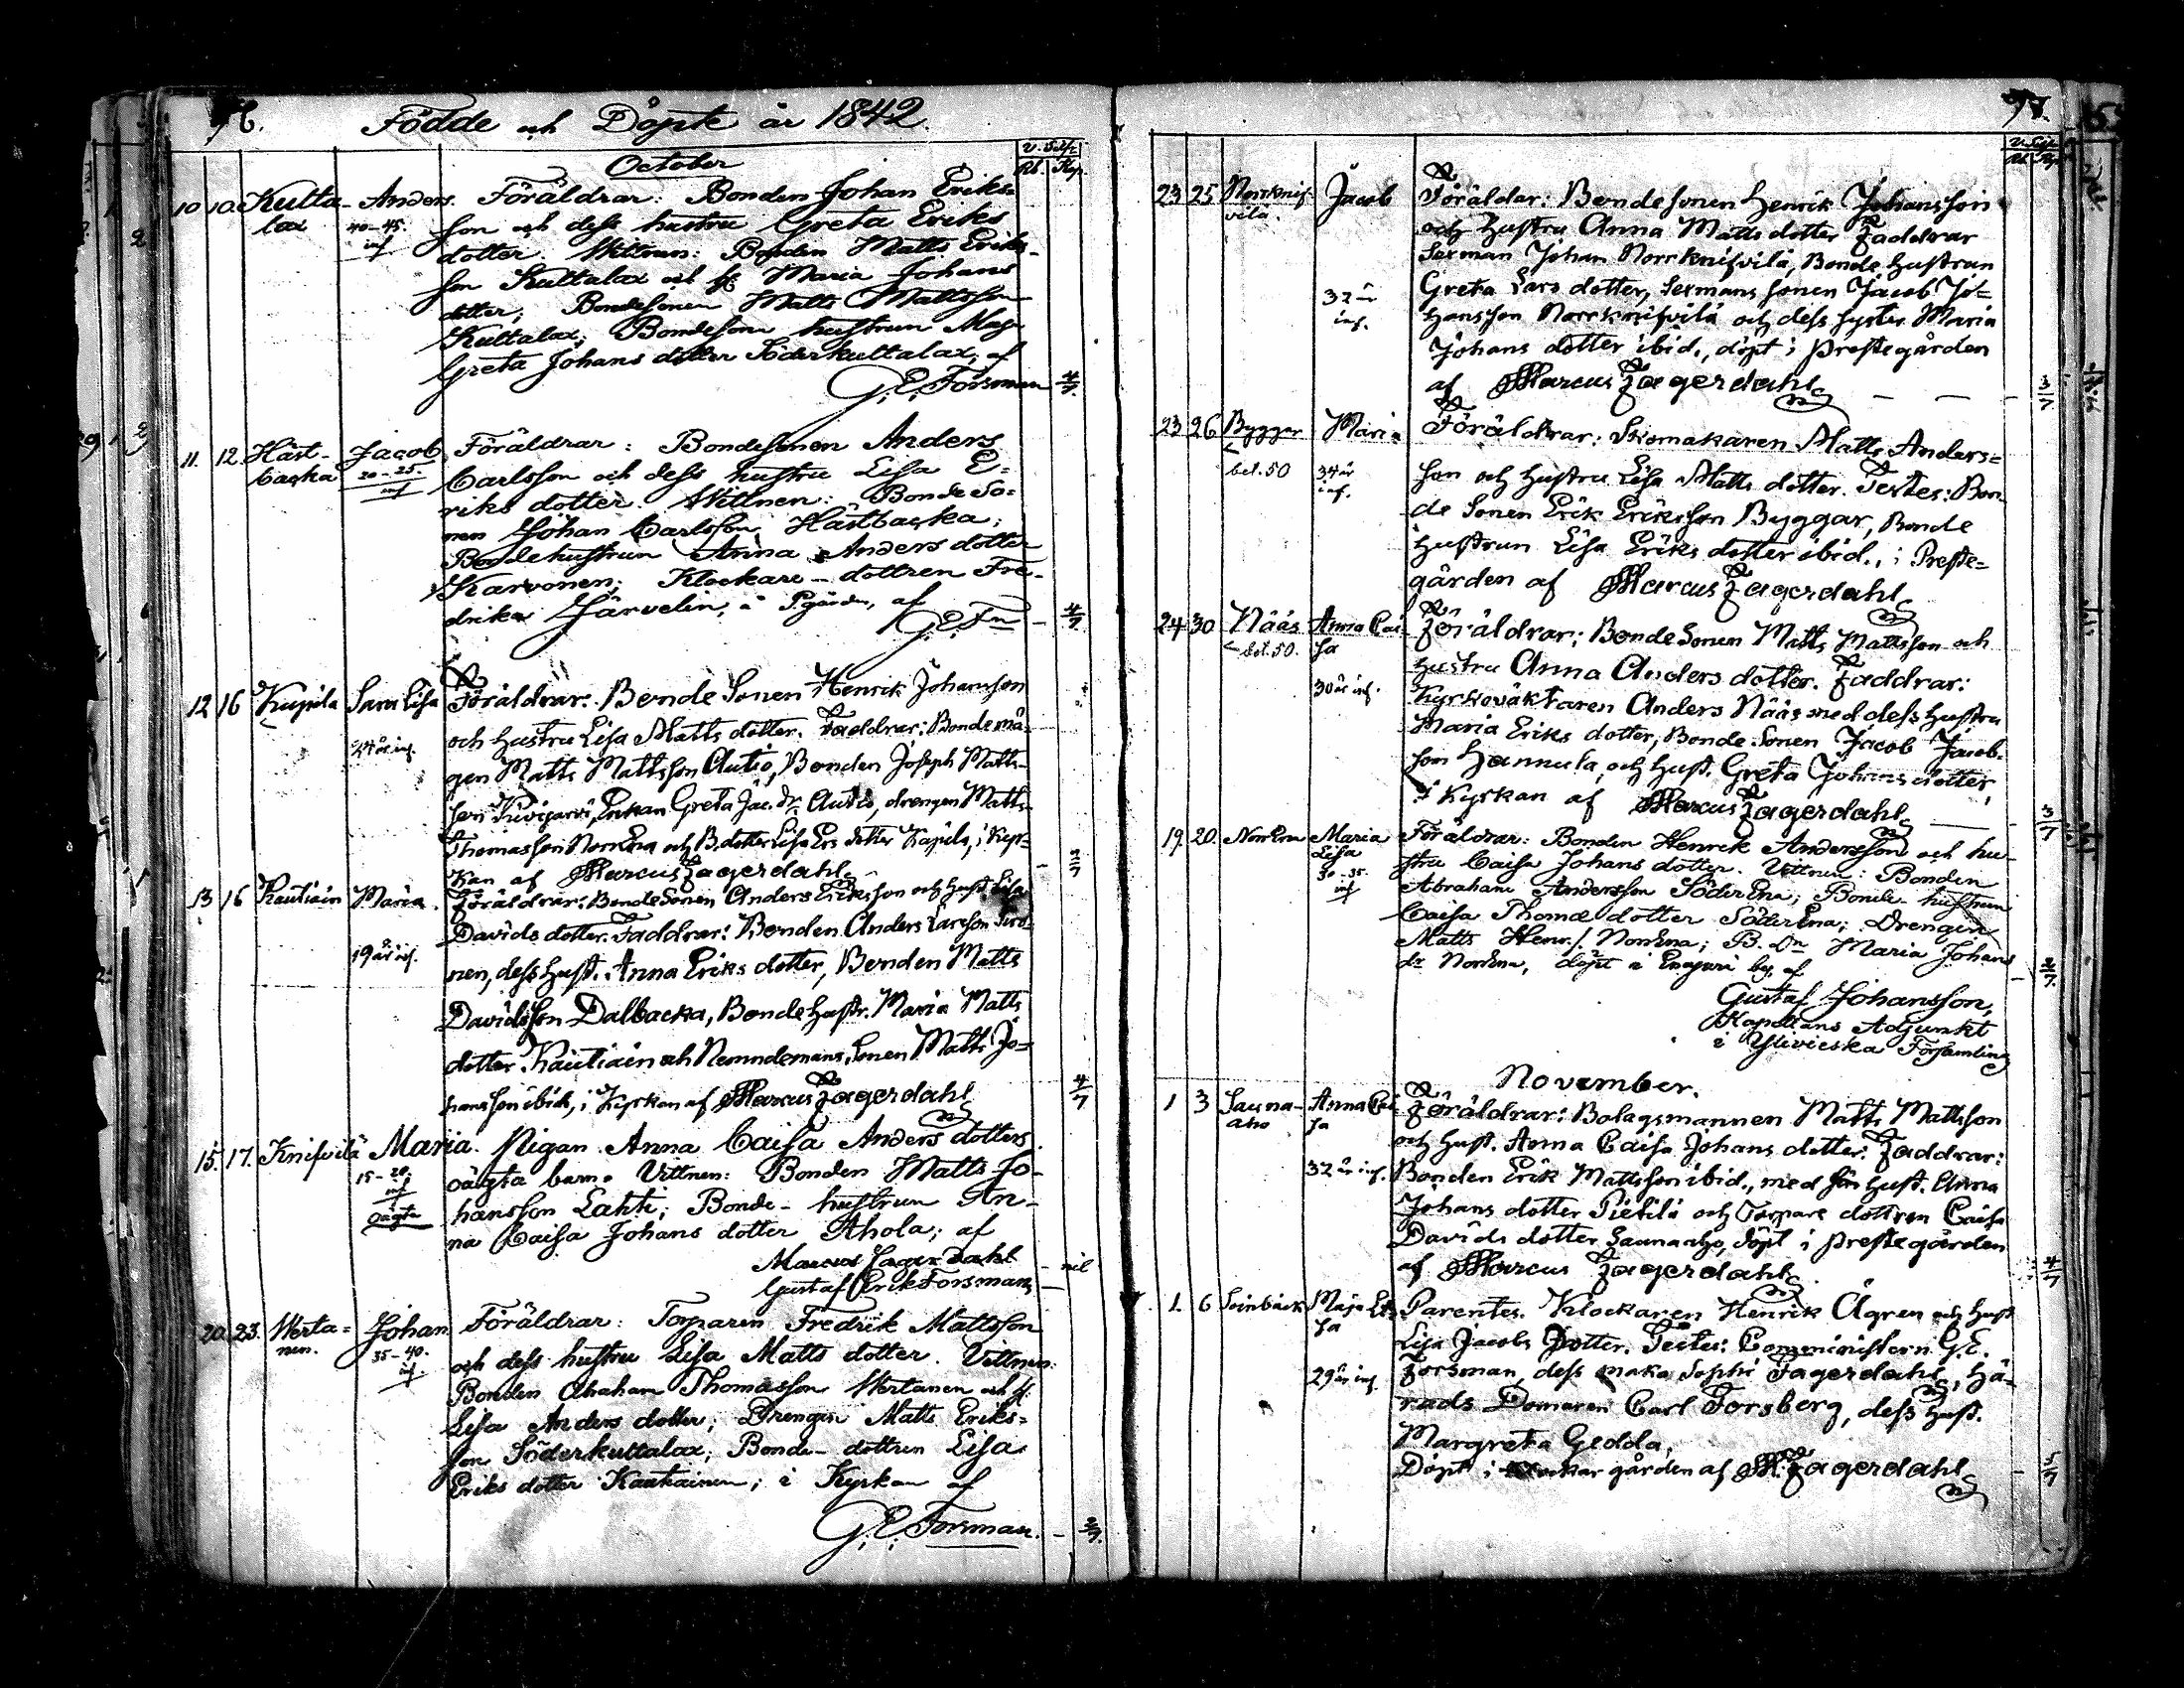 76. Födde och Döpte år 1842.
October
V. Silfr
Rb. Kop.
10 10. Kulta- Anders. Föräldrar: Bonden Johan Eriks-
lax 40-45. son och dess hustru Greta Eriks
inf dotter. Wittnen: Bonden Matts Eriks-
son Kultalax och h. Maria Johans
dotter; Bondesonen Matts Mattsson
Kultalax; Bondesons hustrun Maja
Greta Johans dotter Söderkultalax; af
G. E. Forsman 4/7.
11. 12. Häst- Jacob Föräldrar: Bondesonen Anders
backa 20-25. Carlsson och dess hustru Lisa E-
inf riks dotter. Wittnen: Bonde So-
nen Johan Carlsson Hästbacka;
Bondehustrun Anna Anders dotter
Karvonen; Klockare-dottren Fre-
drika Järvelin, i Pgården, af
G. E. Fn - 4/7
12 16 Kupila Sara Lisa Föräldrar: Bonde Sonen Henrik Johansson
och hustru Lisa Matts dotter. Faddrar: Bonde må-
24 år inf. gen Matts Mattsson Autio, Bonden Joseph Matts-
son Kivijarvi, Enkan Greta Jac. dr. Autio, drengen Matts
Thomasson NorrEna och B. dotter Lisa Ers dotter Kapila, i Kyr-
kan af Marcus Fagerdahl -
13 16 Kautiain Maria. Föräldrar: Bonde Sonen Anders Eriksson och Hust. Lisa
Davids dotter. Faddrar: Bonden Anders Larsson
19 år inf. nen, dess Hust. Anna Eriks dotter, Bonden Matts
Davidsson Dalbacka, Bonde Hustr. Maria Matts
dotter Kautiain och Nemndemans Sonen Matts Jo-
hansson ibid., i Kyrkan af Marcus Fagerdahl 4/7
15. 17. Knifvilä Maria. Pigan Anna Caisa Anders dotters
15-20. oägta barn. Vittnen: Bonden Matts Jo-
inf hansson Lahti; Bonde-hustrun An-
oägta na Caisa Johans dotter Ahola; af
Marcus Fagerdahl - nil
Gustaf Erik Forsman -
20. 23. Werta- Johan Föräldrar: Torparen Fredrik Mattsson
nen. 35-40. och dess hustru Lisa Matts dotter. Vittnen:
inf Bonden Abraham Thomasson Wertanen och h.
Lisa Anders dotter; Drengen Matts Eriks-
son Söderkultalax; Bonde-dottren Lisa
Eriks dotter Kaukainen; i Kyrkan af
G. E. Forsman. -
77.
V. Silfr
Rb. Kop
23 25 Norrknif- Jacob Föräldar: Bondesonen Henrik Johansson
vilä. och Hustru Anna Matts dotter Faddrar
Sexman Johan Norrknifvilä, Bonde hustrun
32 år Greta Lars dotter, Sexmans sonen Jacob Jo-
inf. hansson Norrknifvilä och dess syster Maria
Johans dotter ibid., döpt i Prestegården
af Marcus Fagerdahl - - - 3/7
23 26 Byggar Maria Föräldrar: Skomakaren Matts Anders-
bet. 50 34 år son och Hustru Lisa Matts dotter. Testes: Bon-
inf. de Sonen Erik Eriksson Byggar, Bonde
Hustrun Lisa Eriks dotter ibid., i Preste-
gården af Marcus Fagerdahl
24 30 Nääs Anna Cai- Föräldrar: Bonde Sonen Matts Mattsson och
bet. 50. sa hustru Anna Anders dotter. Faddrar:
30 år inf. Kyrkoväktaren Anders Nääs med dess Hustru
Maria Eriks dotter, Bonde Sonen Jacob Jacob-
son Hannula, och Hust. Greta Johans dotter
i Kyrkan af Marcus Fagerdahl - 3/7
19. 20. NorrEna Maria Föräldrar: Bonden Henrik Andersson och hu-
Lisa stru Caisa Johans dotter. Vittnen: Bonden
30-35. Abraham Andersson SöderEna; Bonde-hustrun
inf Caisa Thomæ dotter SöderEna; Drengen
Matts Henr. s. NorrEna; B. dn Maria Johans
dr NorrEna, döpt i by, af
Gustaf Johansson,
Kapellans Adjunkt
i Ylivieska Församling
November.
1 3 Sauna- Anna Cai Föräldrar: Bolagsmannen Matts Mattsson
aho sa och Hust. Anna Caisa Johans dotter. Faddrar:
32 år inf. Bonden Erik Mattsson ibid., med sin Hust. Anna
Johans dotter Pietilä och Torpare dottren Caisa
Davids dotter Saunaaho, döpt i prestegården
af Marcus Fagerdahl 4/7
1. 6 Maja Parentes. Klockaren Henrik Ågren och Hust
sa Lisa Jacobs Dotter. Testes: Comministern G. E.
29 år inf. Forsman, dess maka Sophi Fagerdahl, Hä-
rads Domaren Carl Forsberg, dess Hust.
Margreta Gedda,
Döpt i Klockar gården af M. Fagerdahl - 5/7